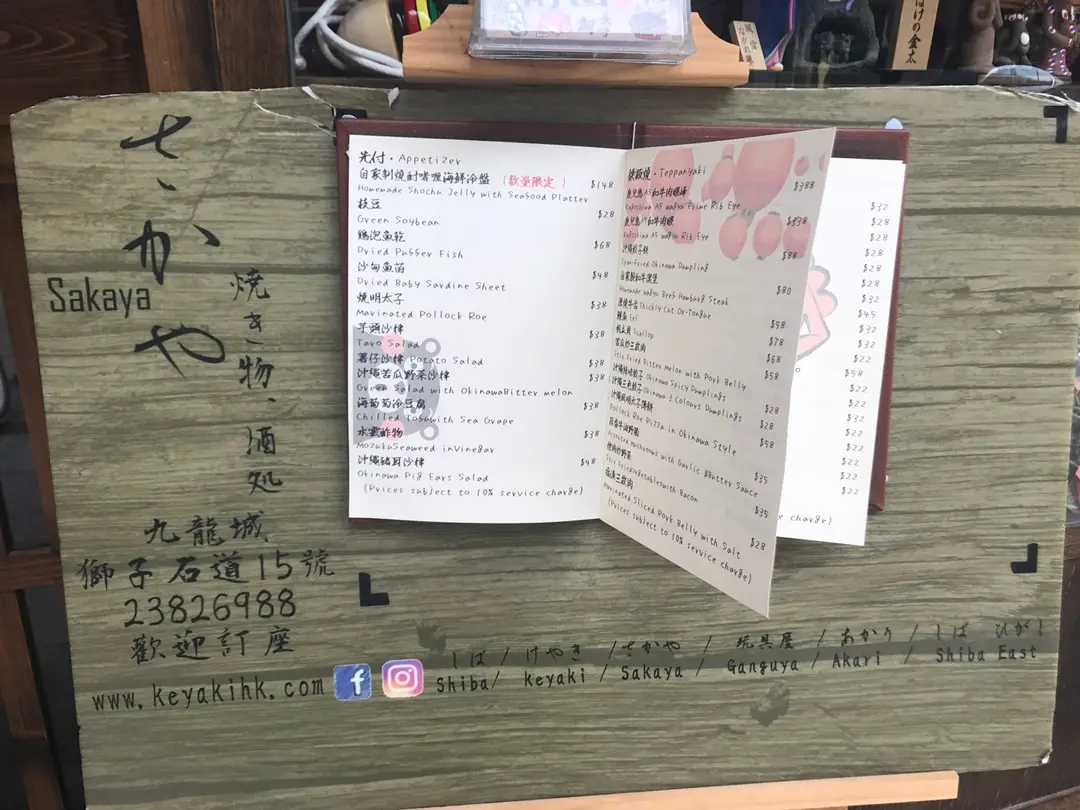 さかや
Sakaya
焼き物・酒処
九龍城
獅子石道15號
23826988
歡迎訂座
www.keyakihk.com
しば / けやき / さかや / 玩具屋 / あかり / しば ひがし
Shiba / keyaki / Sakaya / Ganguya / Akari / Shiba East
先付・Appetizer
自家制燒酎啫喱海鮮冷盤 (数量限定) $148
Homemade Shochu Jelly with Seafood Platter
枝豆 $28
Green Soybean
鶏泡魚乾 $68
Dried Puffer Fish
沙甸魚苗 $48
Dried Baby Sardine Sheet
燒明太子 $38
Marinated Pollock Roe
芋頭沙律 $38
Taro Salad
薯仔沙律 Potato Salad $38
沖繩苦瓜野菜沙律 $38
Green Salad with OkinawaBitter melon
海葡萄冷豆腐 $38
Chilled Tofuwith Sea Grape
水雲酢物 $38
MozukuSeaweed inVinegar
沖繩豬耳沙律 $48
Okinawa Pig Ears Salad
(Prices subject to 10% service charge)
鉄板燒・Teppanyaki
鹿兒島A5和牛肉眼蓋 $388
Kagoshima A5 wagyu Prime Rib Eye
鹿兒島A5和牛肉眼 $338
Kagoshima A5 wagyu Rib Eye
沖繩餃子 $88
Okinawa Dumpling
自家製和牛漢堡 $80
Homemade wagyu Beef Hamburg Steak
厚燒牛舌 Thickly Cut Ox-Tongue
鰻魚 Eel $58
帆立貝 Scallop $78
苦瓜炒三紋肉 $68
Stir Fried Bitter Melon with Pork Belly $58
沖繩辣味餃子 Okinawa Spicy Dumplings
沖繩三色餃子 Okinawa 3 Colours Dumplings $28
沖繩風明太子薄餅 $28
Pollock Roe Pizza in Okinawa Style $58
蒜蓉牛油野菌
Assorted Mushrooms with Garlic &Butter Sauce $35
煙肉炒野菜
Stir Friedvegetableswith Bacon $35
塩漬三紋肉
Marinated Sliced Pork Belly with Salt $28
(Prices subject to 10% service charge)
$32
$28
$28
$28
$28
$28
$32
$45
$32
$32
$22
$58
$22
$22
$32
$22
$22
$22
$22
$22
e charge)
ばけの金太